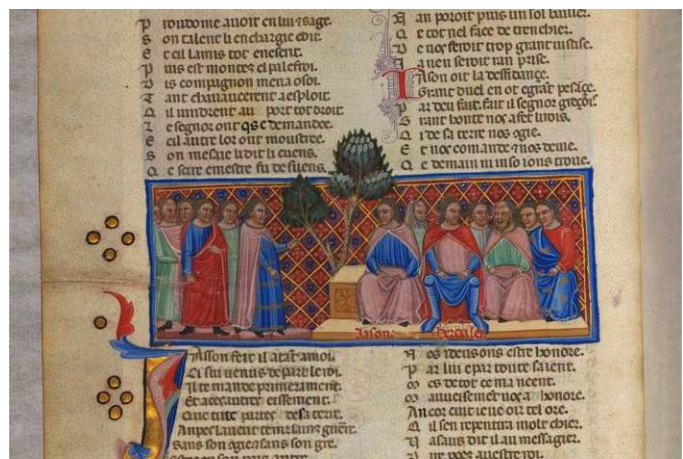 P roudome auoit en lui 7 sage.
S on talent li encharge 7 dit.
E t cil lamis tot en escrit.
P uis est montez el palefroi.
V is compagnon mena o soi.
T ant chauaucerent a esploit.
Q il uindrent au port tot droit.
L e segnor ont qsc demandee.
E cil autre lor ont moustree.
S on mesaie li dit li cuens.
Q e scire emestre fu de suens.
A an poroit puis un sol baillier.
Q e tot nel face detrenchier.
D e nos feroit trop grant iustise.
I a nen seroit ran prise.
Iason oit la deffiance.
Grant duel en ot egrant pesance.
P ar deu fait fait il segnor grezois
G rant honte nos a fet li rois.
Q i de sa terre nos ogie.
E t nos comande 7 nos deuie.
Q e demain ni isoions troue.
Iason
hercules
Iasson fait il a tant a moi.
Ci sui uenus de part le roi.
Il te mande primerament.
Et as autres eissement.
Que tute partez de sa terre.
Anpes lauent tenu sans guere.
Sans son ogie 7 sans son gre.
N os i deusons estre honore.
P ar lui e par toute sa ient.
M es de tot ce ma nient.
M auueisement nos a honore.
An cor cuit ie ue oir tel ore.
Q il sen repentira molt chier.
V asaus dit il au messagier.